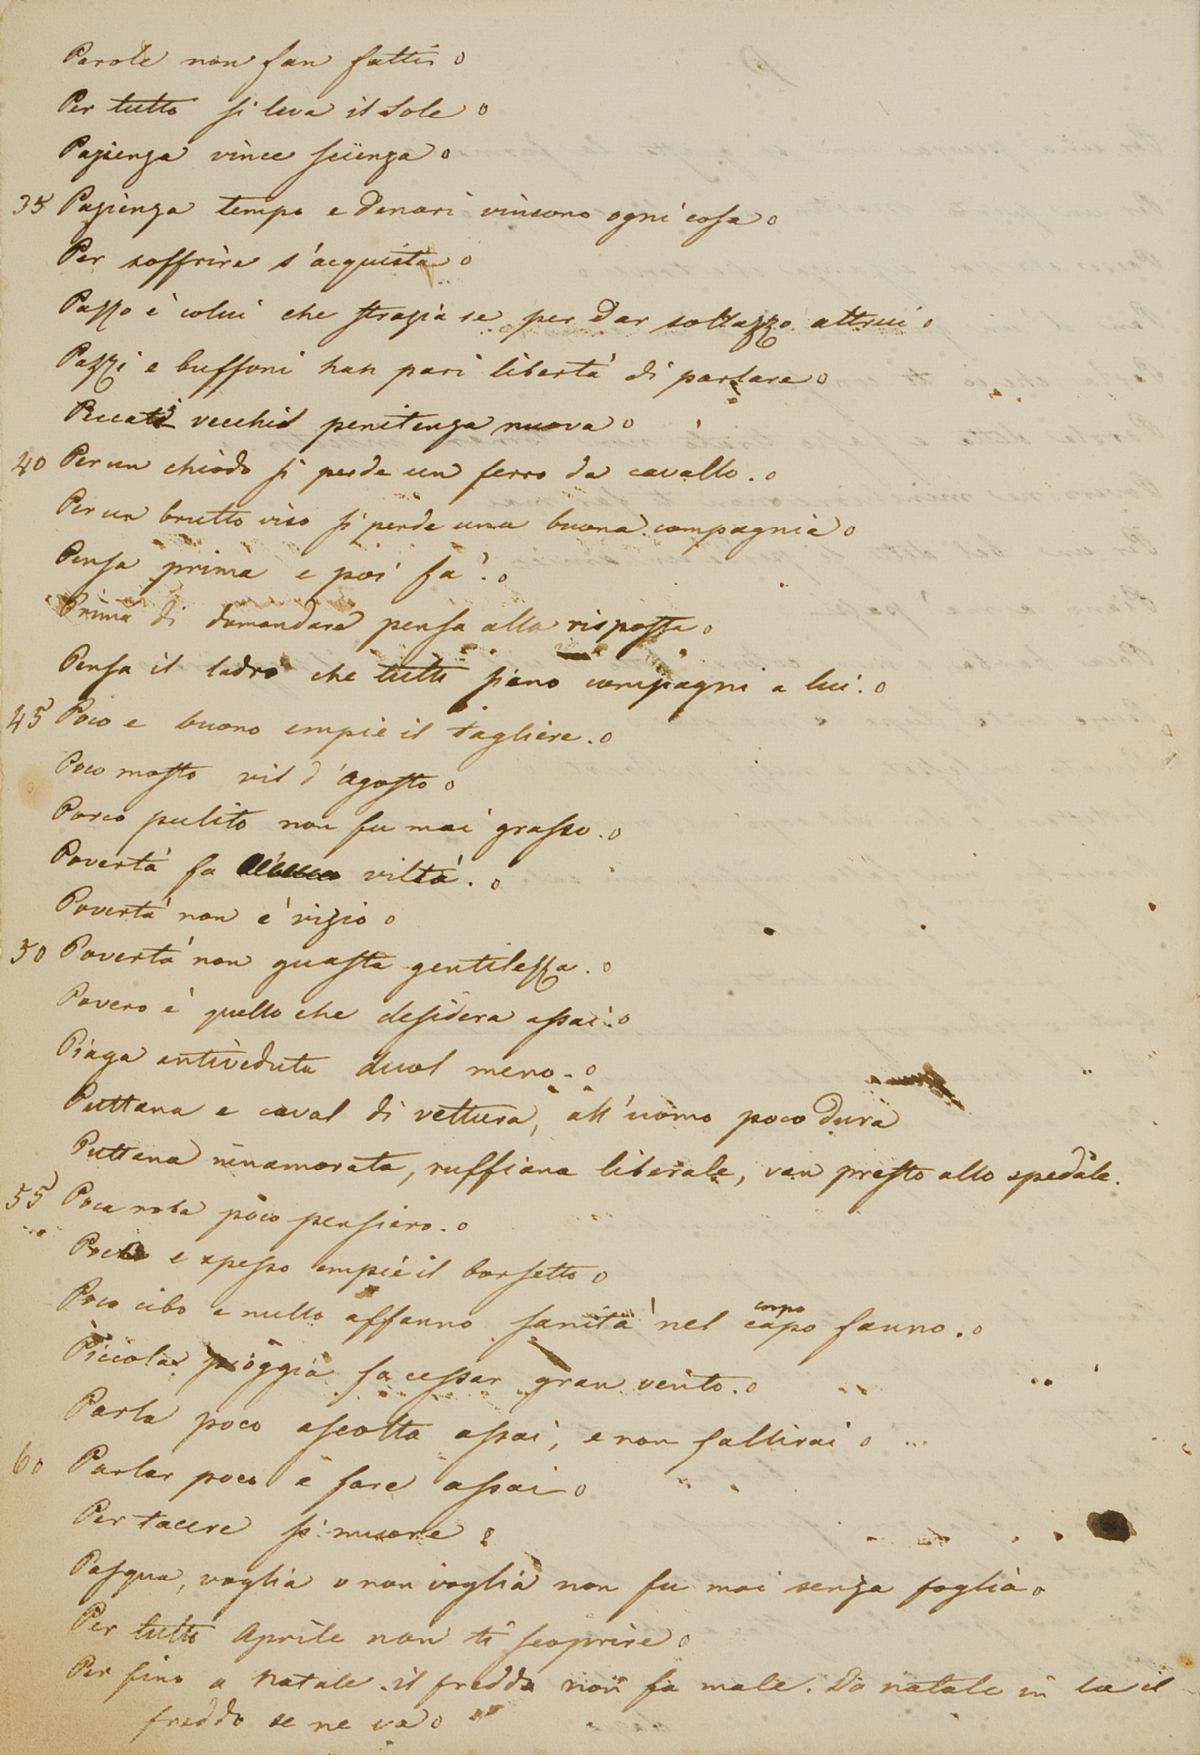 Parole non fan fatti o
Per tutto si leva il Sole o
Pazienza vince scienza o
35 Pazienza tempo e denari vincono ogni cosa o
Per soffrire s'acquista o
Pazzo è colui che strazia se per dar sollazzo altrui o
Pazzi e buffoni han pari libertà di parlare o
Peccati vecchi penitenza nuova o
40 Per un chiodo si perde un ferro da cavallo. o
Per un brutto viso si perde una buona compagnia o
Pensa prima e poi fa'. o
Prima di domandare pensa alla risposta o
Pensa il ladro che tutti siano compagni a lui. o
45 Poco e buono empie il tagliere. o
Poco mosto vil d'Agosto o
Porco pulito non fu mai grasso. o
Povertà fa viltà. o
Povertà non è vizio o
50 Povertà non guasta gentilezza. o
Povero è quello che desidera assai. o
Piaga antiveduta duol meno. o
Puttana e caval di vettura, all'uomo poco dura
Puttana innamorata, ruffiana liberale, van presto allo spedale.
55 Poca roba poco pensiero. o
Poco e spesso empie il borsetto o
corpo
Poco cibo e nullo affanno sanità nel capo fanno. o
Piccola pioggia fa cessar gran vento. o
Parla poco ascolta assai, e non fallirai o
60 Parlar poco e fare assai o
Per tacere si muore
Pasqua, voglia o non voglia non fu mai senza foglia o
Per tutto Aprile non ti scoprire o
Per fino a Natale il freddo non fa male. Da natale in la il
freddo se ne va o